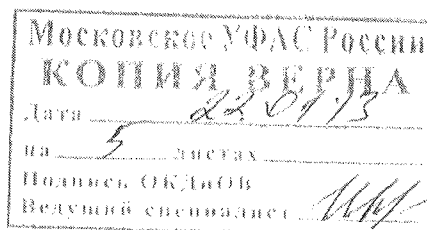 Московское УФАС России
КОПИЯ ВЕРНА
Дата 22 01 13
на 5 листах
Подпись ОКДиОВ
Ведущий специалист